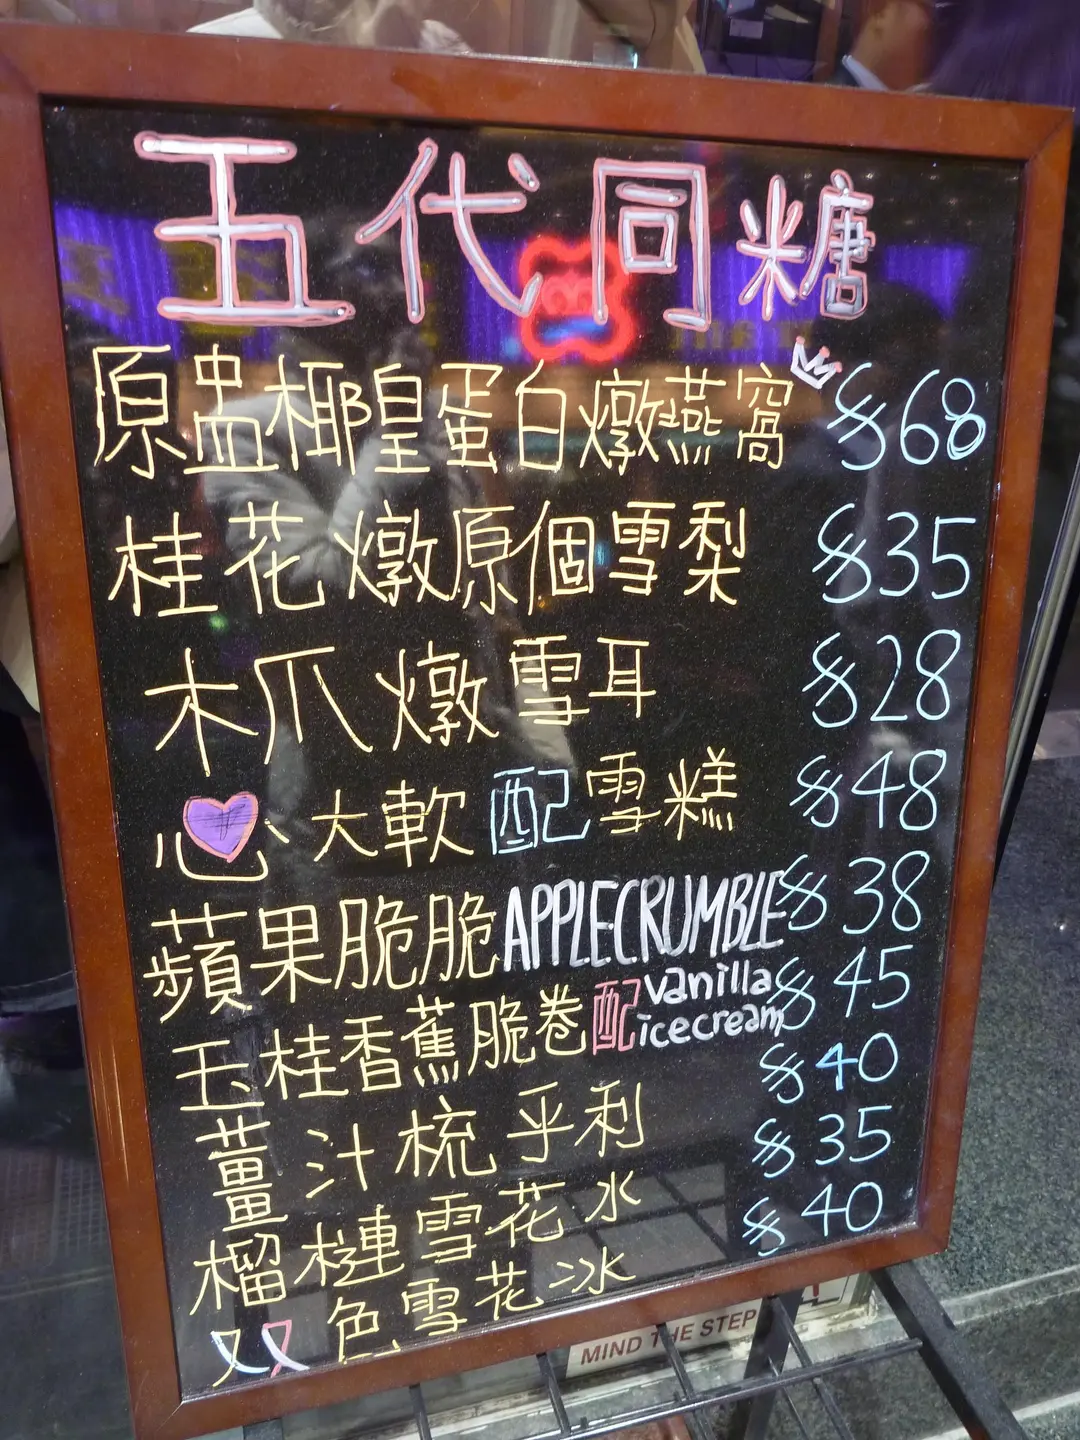 五代同糖
原盅椰皇蛋白燉燕窩 $68
桂花燉原個雪梨 $35
木瓜燉雪耳 $28
心大軟配雪糕 $48
蘋果脆脆 APPLECRUMBLE $38
玉桂香蕉脆卷配 vanilla icecream $45
薑汁梳乎利 $40
榴槤雪花冰 $35
双色雪花冰 $40
MIND THE STEP